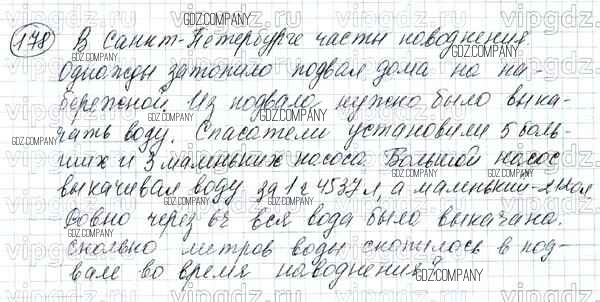 178 В Санкт-Петербурге часты наводнения
Однажды затопило подвал дома на на-
бережной Из подвала нужно было выка-
чать воду. Спасатели установили 5 боль-
ших и 3 маленьких насоса Большой насос
выкачивал воду за 1 ч 4537 л, а маленький-
Ровно через 6ч вся вода была выкачана.
Сколько метров воды скопилось в под-
вале во время наводнения?
GDZ.COMPANY
vipgdz.ru